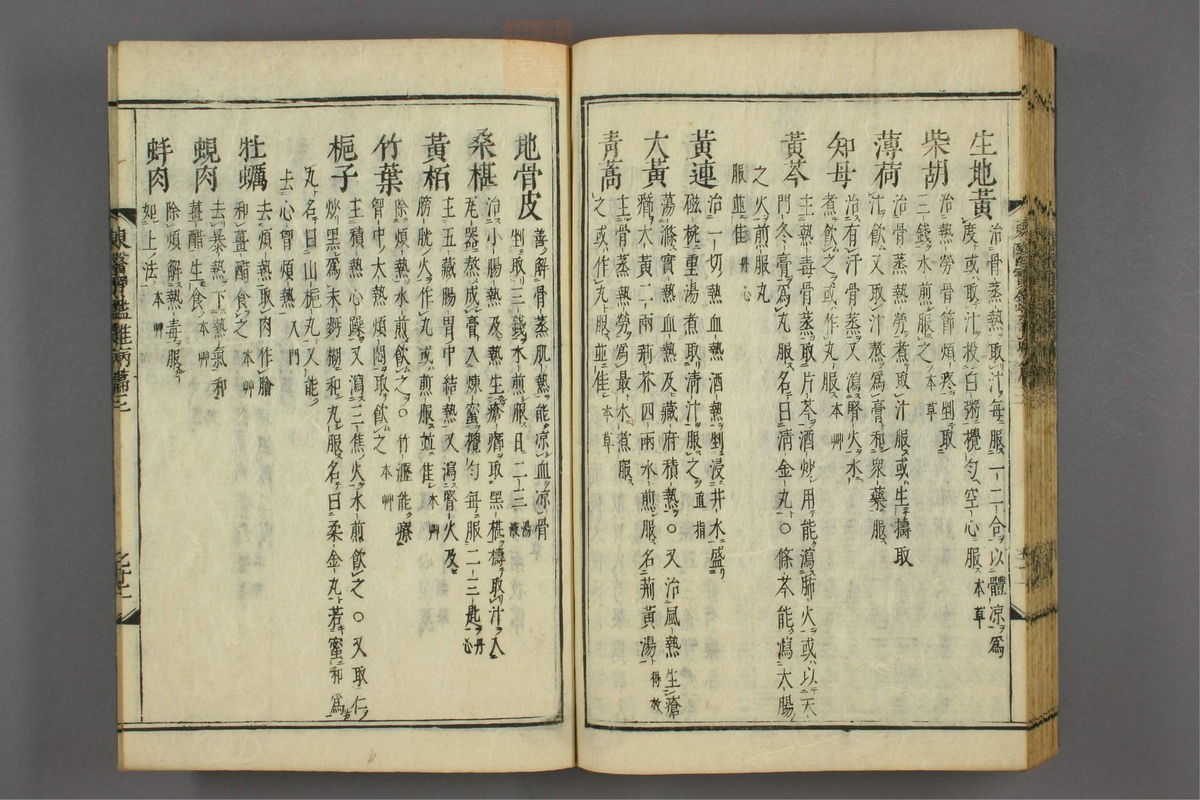 生地黃 治骨蒸熱取汁每服一二合以體凉爲
度或取汁投白粥攪勻空心服 本草
柴胡 治熱勞骨節煩疼剉取
三錢水煎服之 本草
薄荷 治骨蒸熱勞煮取汁服或生擣取
汁飮又取汁熬爲膏和衆藥服
知母 治有汗骨蒸又瀉腎火水
煮飮之或作丸服 本艸
黃芩 主熱毒骨蒸取片芩酒炒用能瀉肺火或以天
門冬膏爲丸服名曰淸金丸○條芩能瀉大腸
之火煎服丸
服並佳 丹心
黃連 治一切熱血熱酒熱剉浸井水盛
磁椀重湯煮取淸汁服之 直指
大黃 蕩滌實熱及藏府積熱○又治風熱生瘡
大黃二兩荊芥四兩水煎服名荊黃湯 得效
靑蒿 主骨蒸熱勞爲最水煮服
之或作丸服並佳 本草
地骨皮 善解骨蒸肌熱能凉血凉骨
剉取三錢水煎服日二三 湯液
桑椹 治小腸熱及熱生瘡癤取黑椹擣取汁入
器熬成膏入煉蜜攪勻每服二三匙 丹心
黃栢 主五藏腸胃中結熱又瀉腎火及
膀胱火作丸或煎服並佳 本艸
竹葉 除煩熱水煎飮之○竹瀝能療
胷中大熱煩悶取飮之 本艸
梔子 主積熱心躁又瀉三焦火水煎飮之○又取仁
炒黑爲末麪糊和丸服名曰柔金丸若蜜和爲
丸名曰山梔丸又能
去心胷煩熱 入門
牡蠣 去煩熱取肉作膾
和薑醋食之 本艸
蜆肉 去暴熱下熱氣和
薑醋生食 本艸
蚌肉 除煩解熱毒服
如上法 本艸
東醫寶鑑雜病篇 三